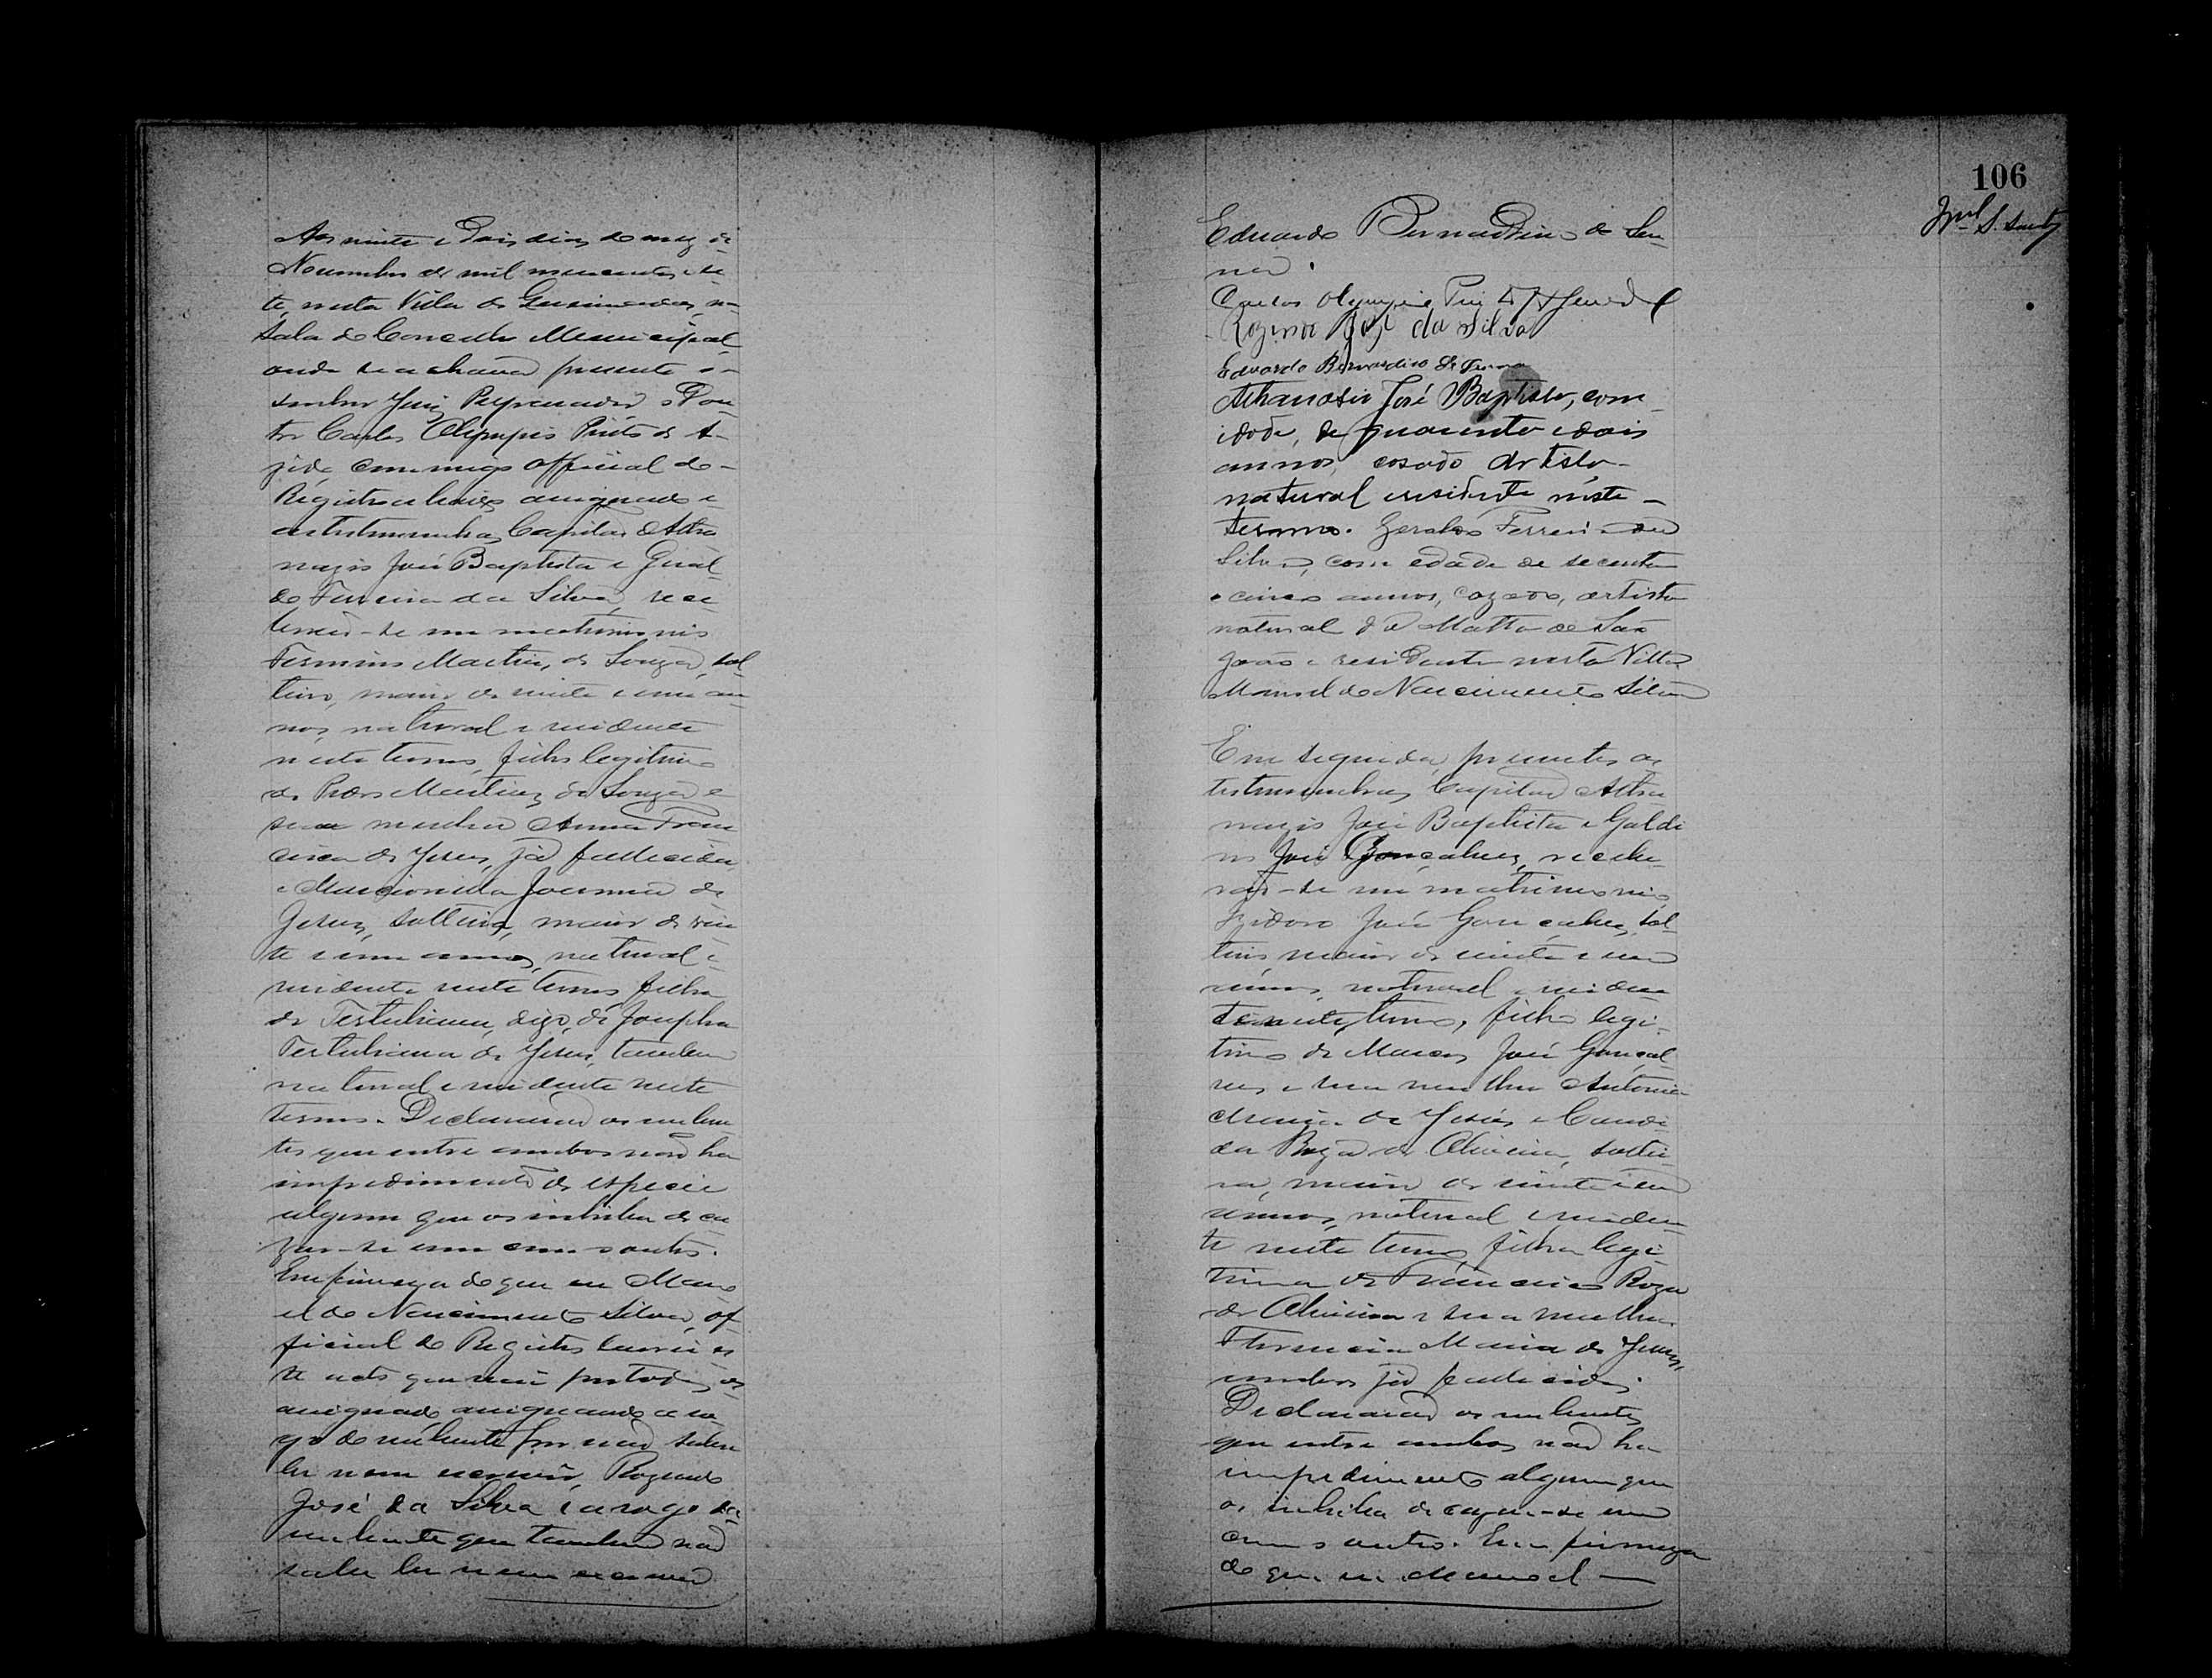 Aos vinte e dois dias do mez de
Novembro de mil novecentos e se
te, nesta Villa de Queimadas, na
sala do Concelho Municipal,
onde se achava presente o
senhor Juiz Preparador o Dou
tor Carlos Olympio Pinto de A-
commigo official do
Registro abaixo assignado e
as testemunhas Capitão Atha
nazio José Baptista e Geral
do Ferreira da Silva, rece
beráo-se em matrimonio
Firmino Martins de Souza, sol
teiro, maior de vinte e um an
nos, natural e residente
neste termo, filho legitimo
de Pedro Martins de Souza e
sua mulher Anna Fran
cisca de Jesus, já fallecida,
e Marcionilla Joanna de
Jesus, solteira, maior de vin
te e um annos, natural e
residente neste termo, filha
de Tertuliana, digo, de Josepha
Tertuliana de Jesus, tambem
natural e residente neste
termo. Declararão os nuben
tes que entre ambos não ha
impedimento de especie
alguma que os inhiba de ca
zar-se um com o outro.
Em firmeza do que eu Mano
el do Nascimento Silva, of
ficial do Registro lavrei es
te acto que vai por todos os
assignado, assignando a ro
go do nubente por não saber
ler nem escrever, Rozendo
José da Silva e a rogo da
nubente que tambem não
sabe ler nem escrever
106
Eduardo Bernardino de Sen
na.
Carlos Olympio
Rozendo José da Silva
Eduardo Bernardino de Senna
Athanasio José Baptista, com
idade, de quarenta e dois
annos, casado artista
natural e residente néste
termo. Geraldo Ferreira da
Silva, com edade de secenta
e cinco annos, cazado, artista
natural da Matta de São
João e residente nesta Villa
Manoel do Nascimento Silva
Em seguida, presentes as
testemunhas Capitão Atha
nazio José Baptista e Galdi
no José Gonçalves, recebe
rão-se em matrimonio
Izidoro José Gonçalves, sol
teiro, maior de vinte e um
annos, natural e residen
te neste termo, filho legi-
timo de Marcos José Gonçal
ves e sua mulher Antonia
Maria de Jesus e Candi
da Roza de Oliveira, soltei
ra, maior de vinte e um
annos, natural e residen
te neste termo, filha legi
tima de Francisco Roza
de Oliveira e sua mulher
Florencia Maria de Jesus,
ambos já fallecidos.
Declararão os nubentes
que entre ambos não ha
impedimento algum que
os inhiba de cazar-se um
com o outro. Em firmeza
do que eu Manoel